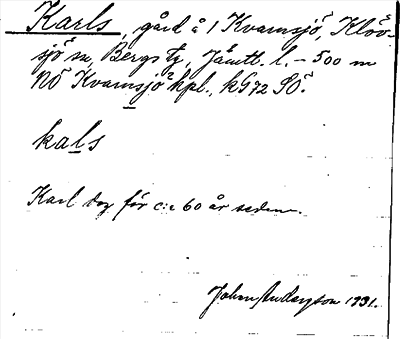 Karls, gård å 1 Kvarnsjö, Klöv-
sjö sn, Bergs tg, Jämtl. l. – 500 m
NÖ Kvarnsjö kpl., kG72 SÖ.
kals
Karl dog för c:a 60 år sedan.
John Anderzson 1931.